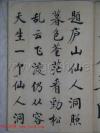 题庐山仙人洞照
暮色苍茫看劲松
乱云飞渡仍从容
天生一个仙人洞